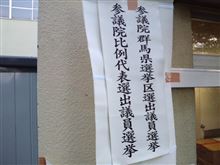 参議院群馬県選挙区選出議員選挙
参議院比例代表選出議員選挙